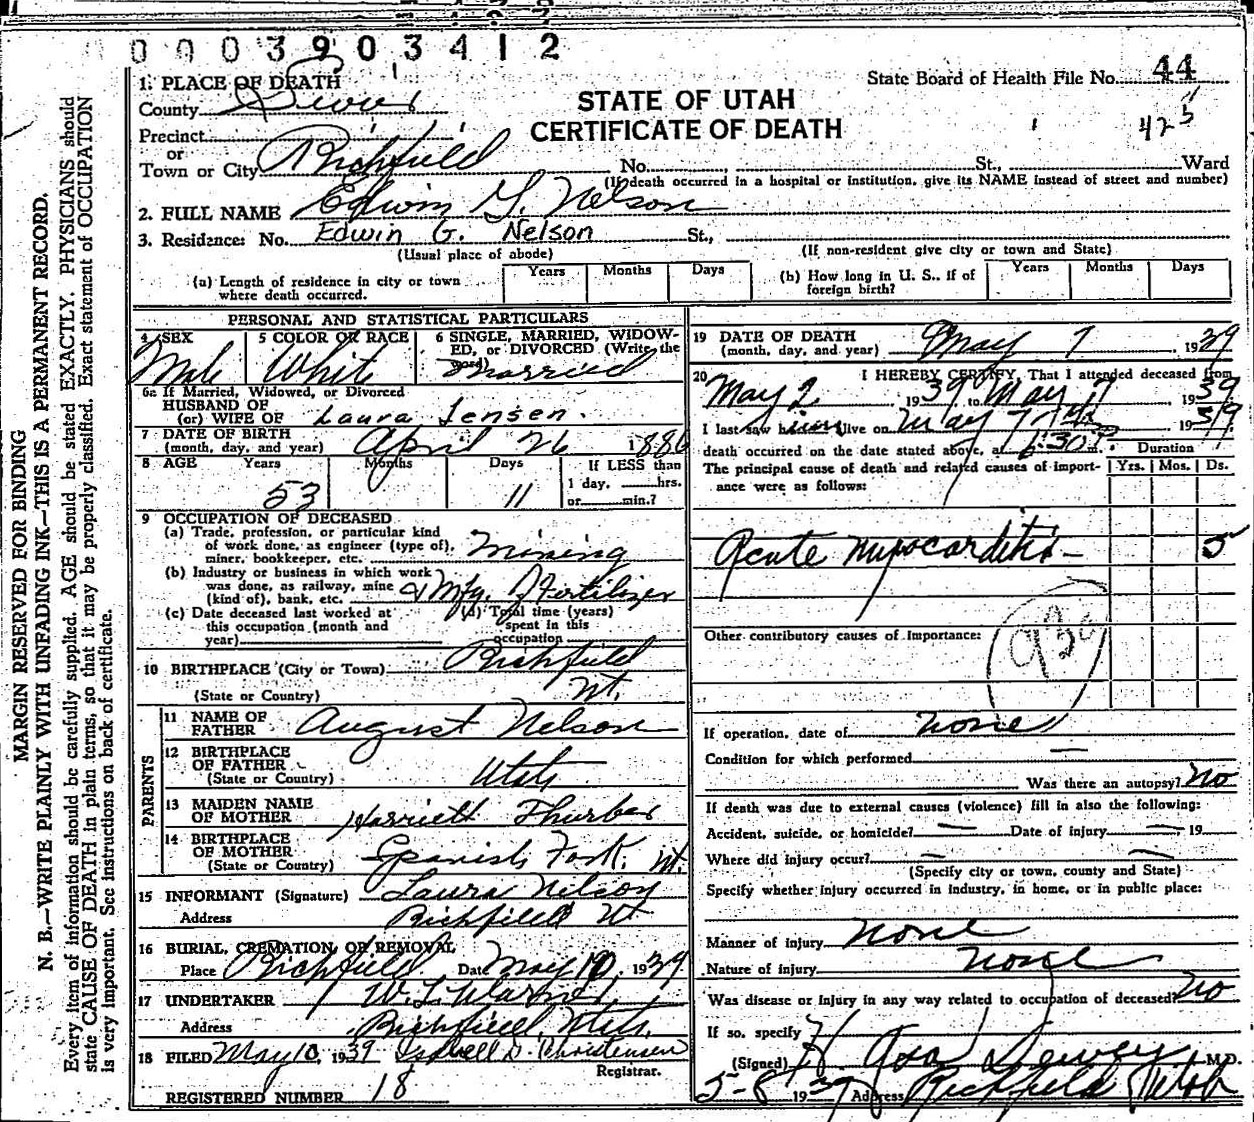 0003903412
State Board of Health File No. 44
425
STATE OF UTAH
CERTIFICATE OF DEATH
1. PLACE OF DEATH
County Sevier
Precinct
or
Town or City Richfield No. St., Ward
(If death occurred in a hospital or institution, give its NAME instead of street and number)
2. FULL NAME Edwin G. Nelson
3. Residence: No. Edwin G. Nelson St.,
(Usual place of abode) (If non-resident give city or town and State)
(a) Length of residence in city or town where death occurred. Years Months Days
(b) How long in U. S., if of foreign birth? Years Months Days
PERSONAL AND STATISTICAL PARTICULARS
4 SEX Male
5 COLOR OR RACE White
6 SINGLE, MARRIED, WIDOWED, or DIVORCED (Write the word) Married
6a If Married, Widowed, or Divorced
HUSBAND OF
(or) WIFE OF Laura Jensen.
7 DATE OF BIRTH
(month, day, and year) April 26 1886
8 AGE Years 53 Months Days 11 If LESS than 1 day, hrs. or min.?
9 OCCUPATION OF DECEASED
(a) Trade, profession, or particular kind of work done, as engineer (type of), miner, bookkeeper, etc. Mining
(b) Industry or business in which work was done, as railway, mine (kind of), bank, etc. & Mfg. of Fertilizer
(c) Date deceased last worked at this occupation (month and year)
(d) Total time (years) spent in this occupation
10 BIRTHPLACE (City or Town) Richfield
(State or Country) Ut.
PARENTS
11 NAME OF FATHER August Nelson
12 BIRTHPLACE OF FATHER (State or Country) Utah
13 MAIDEN NAME OF MOTHER Harriett Thurber
14 BIRTHPLACE OF MOTHER (State or Country) Spanish Fork, Ut.
15 INFORMANT (Signature) Laura Nelson
Address Richfield Ut
16 BURIAL, CREMATION, OR REMOVAL
Place Richfield Date May 10, 1939
17 UNDERTAKER W. L. Warner,
Address Richfield, Utah.
18 FILED May 10, 1939 D. Christensen
Registrar.
REGISTERED NUMBER 18
19 DATE OF DEATH
(month, day, and year) May 7, 1939
20 I HEREBY CERTIFY, That I attended deceased from
May 2 1939 to May 7 1939
I last saw him alive on May 7th 1939
death occurred on the date stated above, at 6:30 P. m.
Duration
The principal cause of death and related causes of importance were as follows: Yrs. Mos. Ds.
Acute myocarditis - 5
Other contributory causes of importance:
If operation, date of none
Condition for which performed —
Was there an autopsy? No
If death was due to external causes (violence) fill in also the following:
Accident, suicide, or homicide? — Date of injury — 19
Where did injury occur? —
(Specify city or town, county and State)
Specify whether injury occurred in industry, in home, or in public place:
Manner of injury none
Nature of injury none
Was disease or injury in any way related to occupation of deceased? No
If so, specify
(Signed) Asa Dewey M.D.
5-8 1939 Address Richfield Utah
MARGIN RESERVED FOR BINDING
N. B.—WRITE PLAINLY WITH UNFADING INK—THIS IS A PERMANENT RECORD.
Every item of information should be carefully supplied. AGE should be stated EXACTLY. PHYSICIANS should
state CAUSE OF DEATH in plain terms, so that it may be properly classified. Exact statement of OCCUPATION
is very important. See instructions on back of certificate.